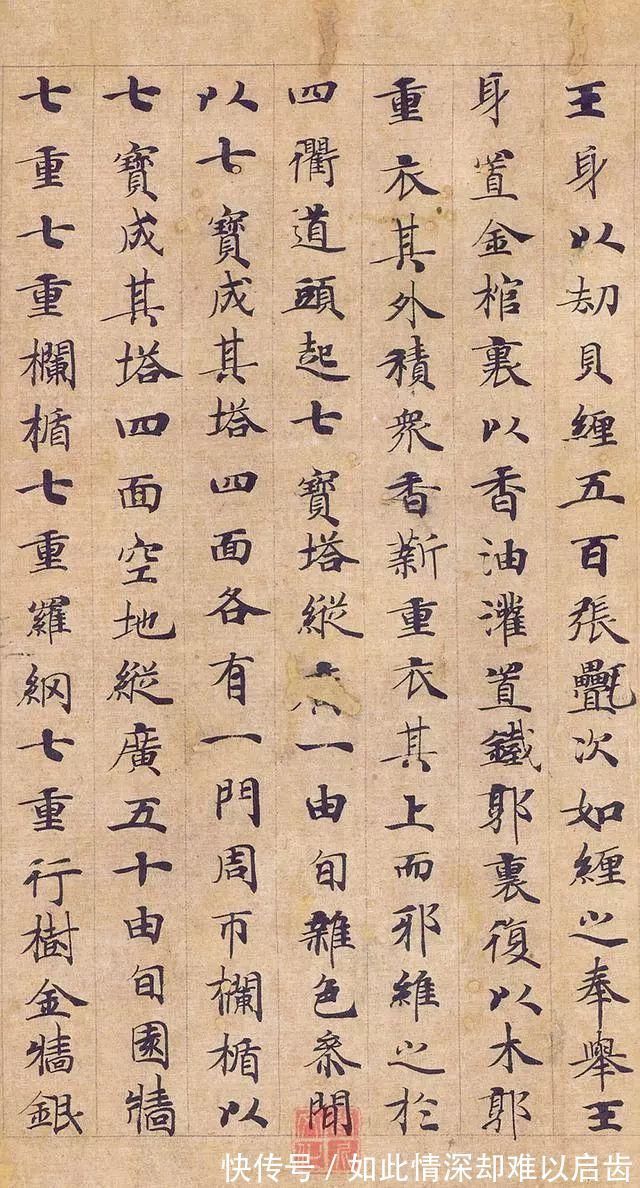 王身以劫貝纏五百張氎次如纏之奉舉王
身置金棺裏以香油灌置鐵郭裏復以木郭
重衣其外積衆香薪重衣其上而邪維之於
四衢道頭起七寶塔縱一由旬雜色叅間
以七寶成其塔四面各有一門周帀欄楯以
七寶成其塔四面空地縱廣五十由旬園牆
七重七重欄楯七重羅網七重行樹金牆銀
快传号 / 如此情深却难以启齿